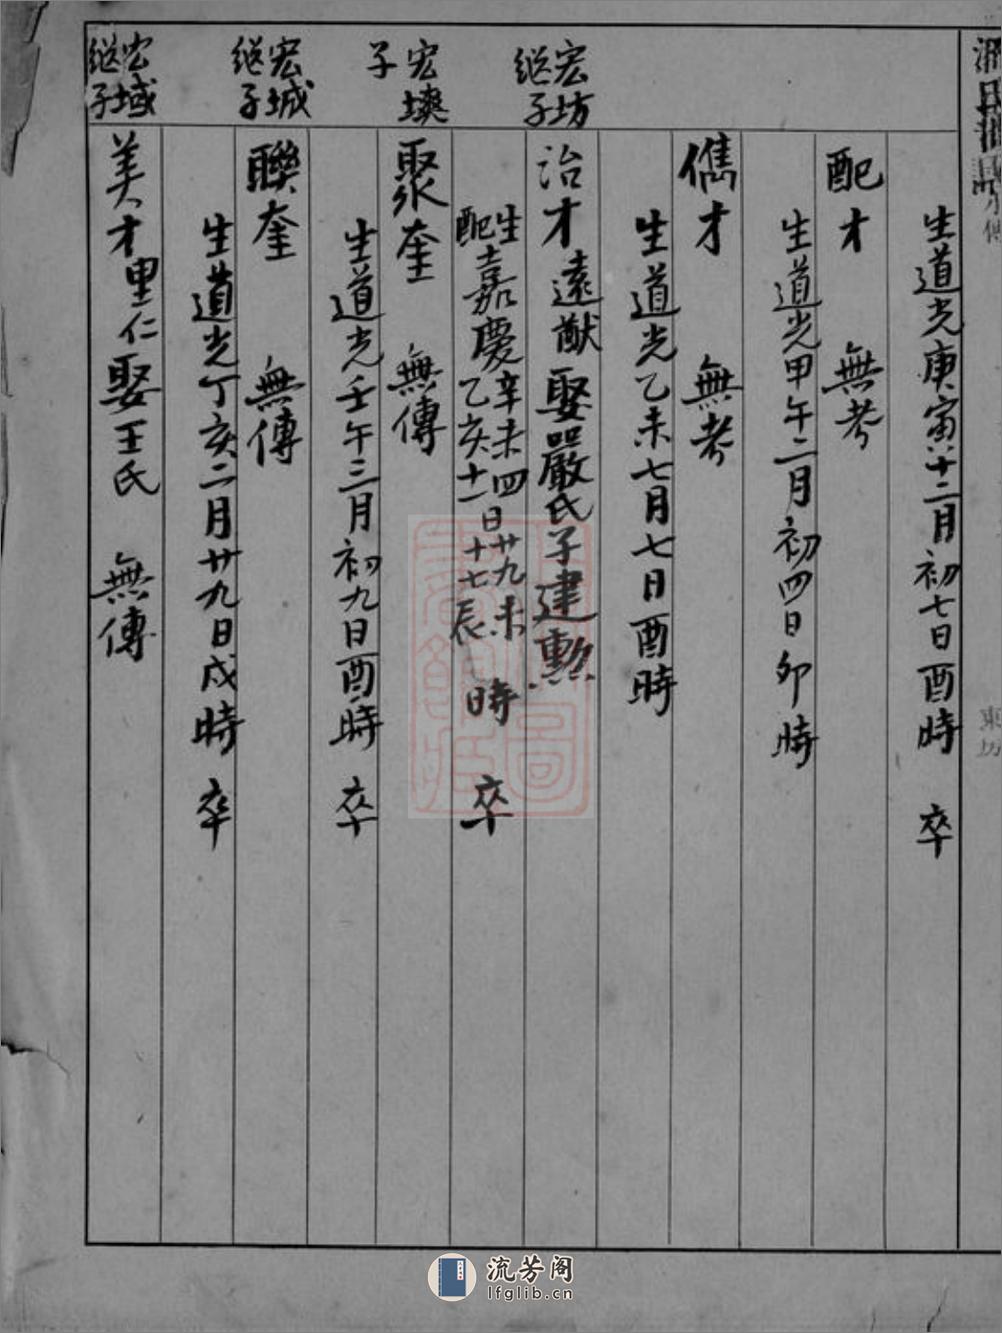 生道光庚寅十二月初七日酉時 卒
配才 無考
生道光甲午二月初四日卯時
儁才 無考
生道光乙未七月七日酉時
宏坊
继子
治才 遠猷 娶嚴氏子建勲
生嘉慶辛未四日廿九未時 卒
配乙亥十一十七辰
宏墺
子
聚奎 無傳
生道光壬午三月初九日酉時 卒
宏城
继子
聯奎 無傳
生道光丁亥二月廿九日戌時 卒
宏域
继子
美才 里仁 娶王氏 無傳
東坊
流芳阁
lfglib.cn